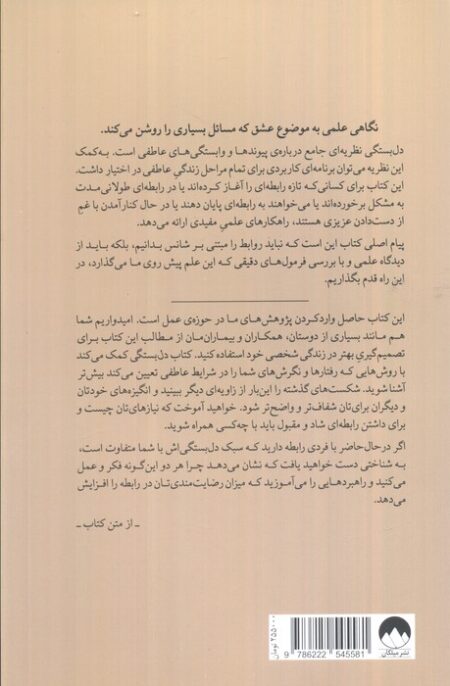 نگاهی علمی به موضوع عشق که مسائل بسیاری را روشن می‌کند.
دل‌بستگی نظریه‌ای جامع درباره‌ی پیوندها و وابستگی‌های عاطفی است. به‌کمک
این نظریه می‌توان برنامه‌ای کاربردی برای تمام مراحل زندگیِ عاطفی در اختیار داشت.
این کتاب برای کسانی‌که تازه رابطه‌ای را آغاز کرده‌اند یا در رابطه‌ای طولانی‌مدت
به مشکل برخورده‌اند یا می‌خواهند به رابطه‌ای پایان دهند یا در حال کنارآمدن با غمِ
از دست‌دادن عزیزی هستند، راهکارهای علمیِ مفیدی ارائه می‌دهد.
پیام اصلی کتاب این است که نباید روابط را مبتنی بر شانس بدانیم، بلکه باید از
دیدگاه علمی و با بررسی فرمول‌های دقیقی که این علم پیش روی ما می‌گذارد، در
این راه قدم بگذاریم.
این کتاب حاصل واردکردن پژوهش‌های ما در حوزه‌ی عمل است. امیدواریم شما
هم مانند بسیاری از دوستان، همکاران و بیماران‌مان از مطالب این کتاب برای
تصمیم‌گیریِ بهتر در زندگی شخصی خود استفاده کنید. کتاب دل‌بستگی کمک می‌کند
با روش‌هایی که رفتارها و نگرش‌های شما را در شرایط عاطفی تعیین می‌کند بیش‌تر
آشنا شوید. شکست‌های گذشته را این‌بار از زاویه‌ای دیگر ببینید و انگیزه‌های خودتان
و دیگران برای‌تان شفاف‌تر و واضح‌تر شود. خواهید آموخت که نیازهای‌تان چیست و
برای داشتن رابطه‌ای شاد و مقبول باید با چه‌کسی همراه شوید.
اگر درحال‌حاضر با فردی رابطه دارید که سبک دل‌بستگی‌اش با شما متفاوت است،
به شناختی دست خواهید یافت که نشان می‌دهد چرا هر دو این‌گونه فکر و عمل
می‌کنید و راهبردهایی را می‌آموزید که میزان رضایت‌مندی‌تان در رابطه را افزایش
می‌دهد.
ـ از متن کتاب ـ
۲۵۵۰۰۰ تومان
9 786222 545581
نشر میلکان